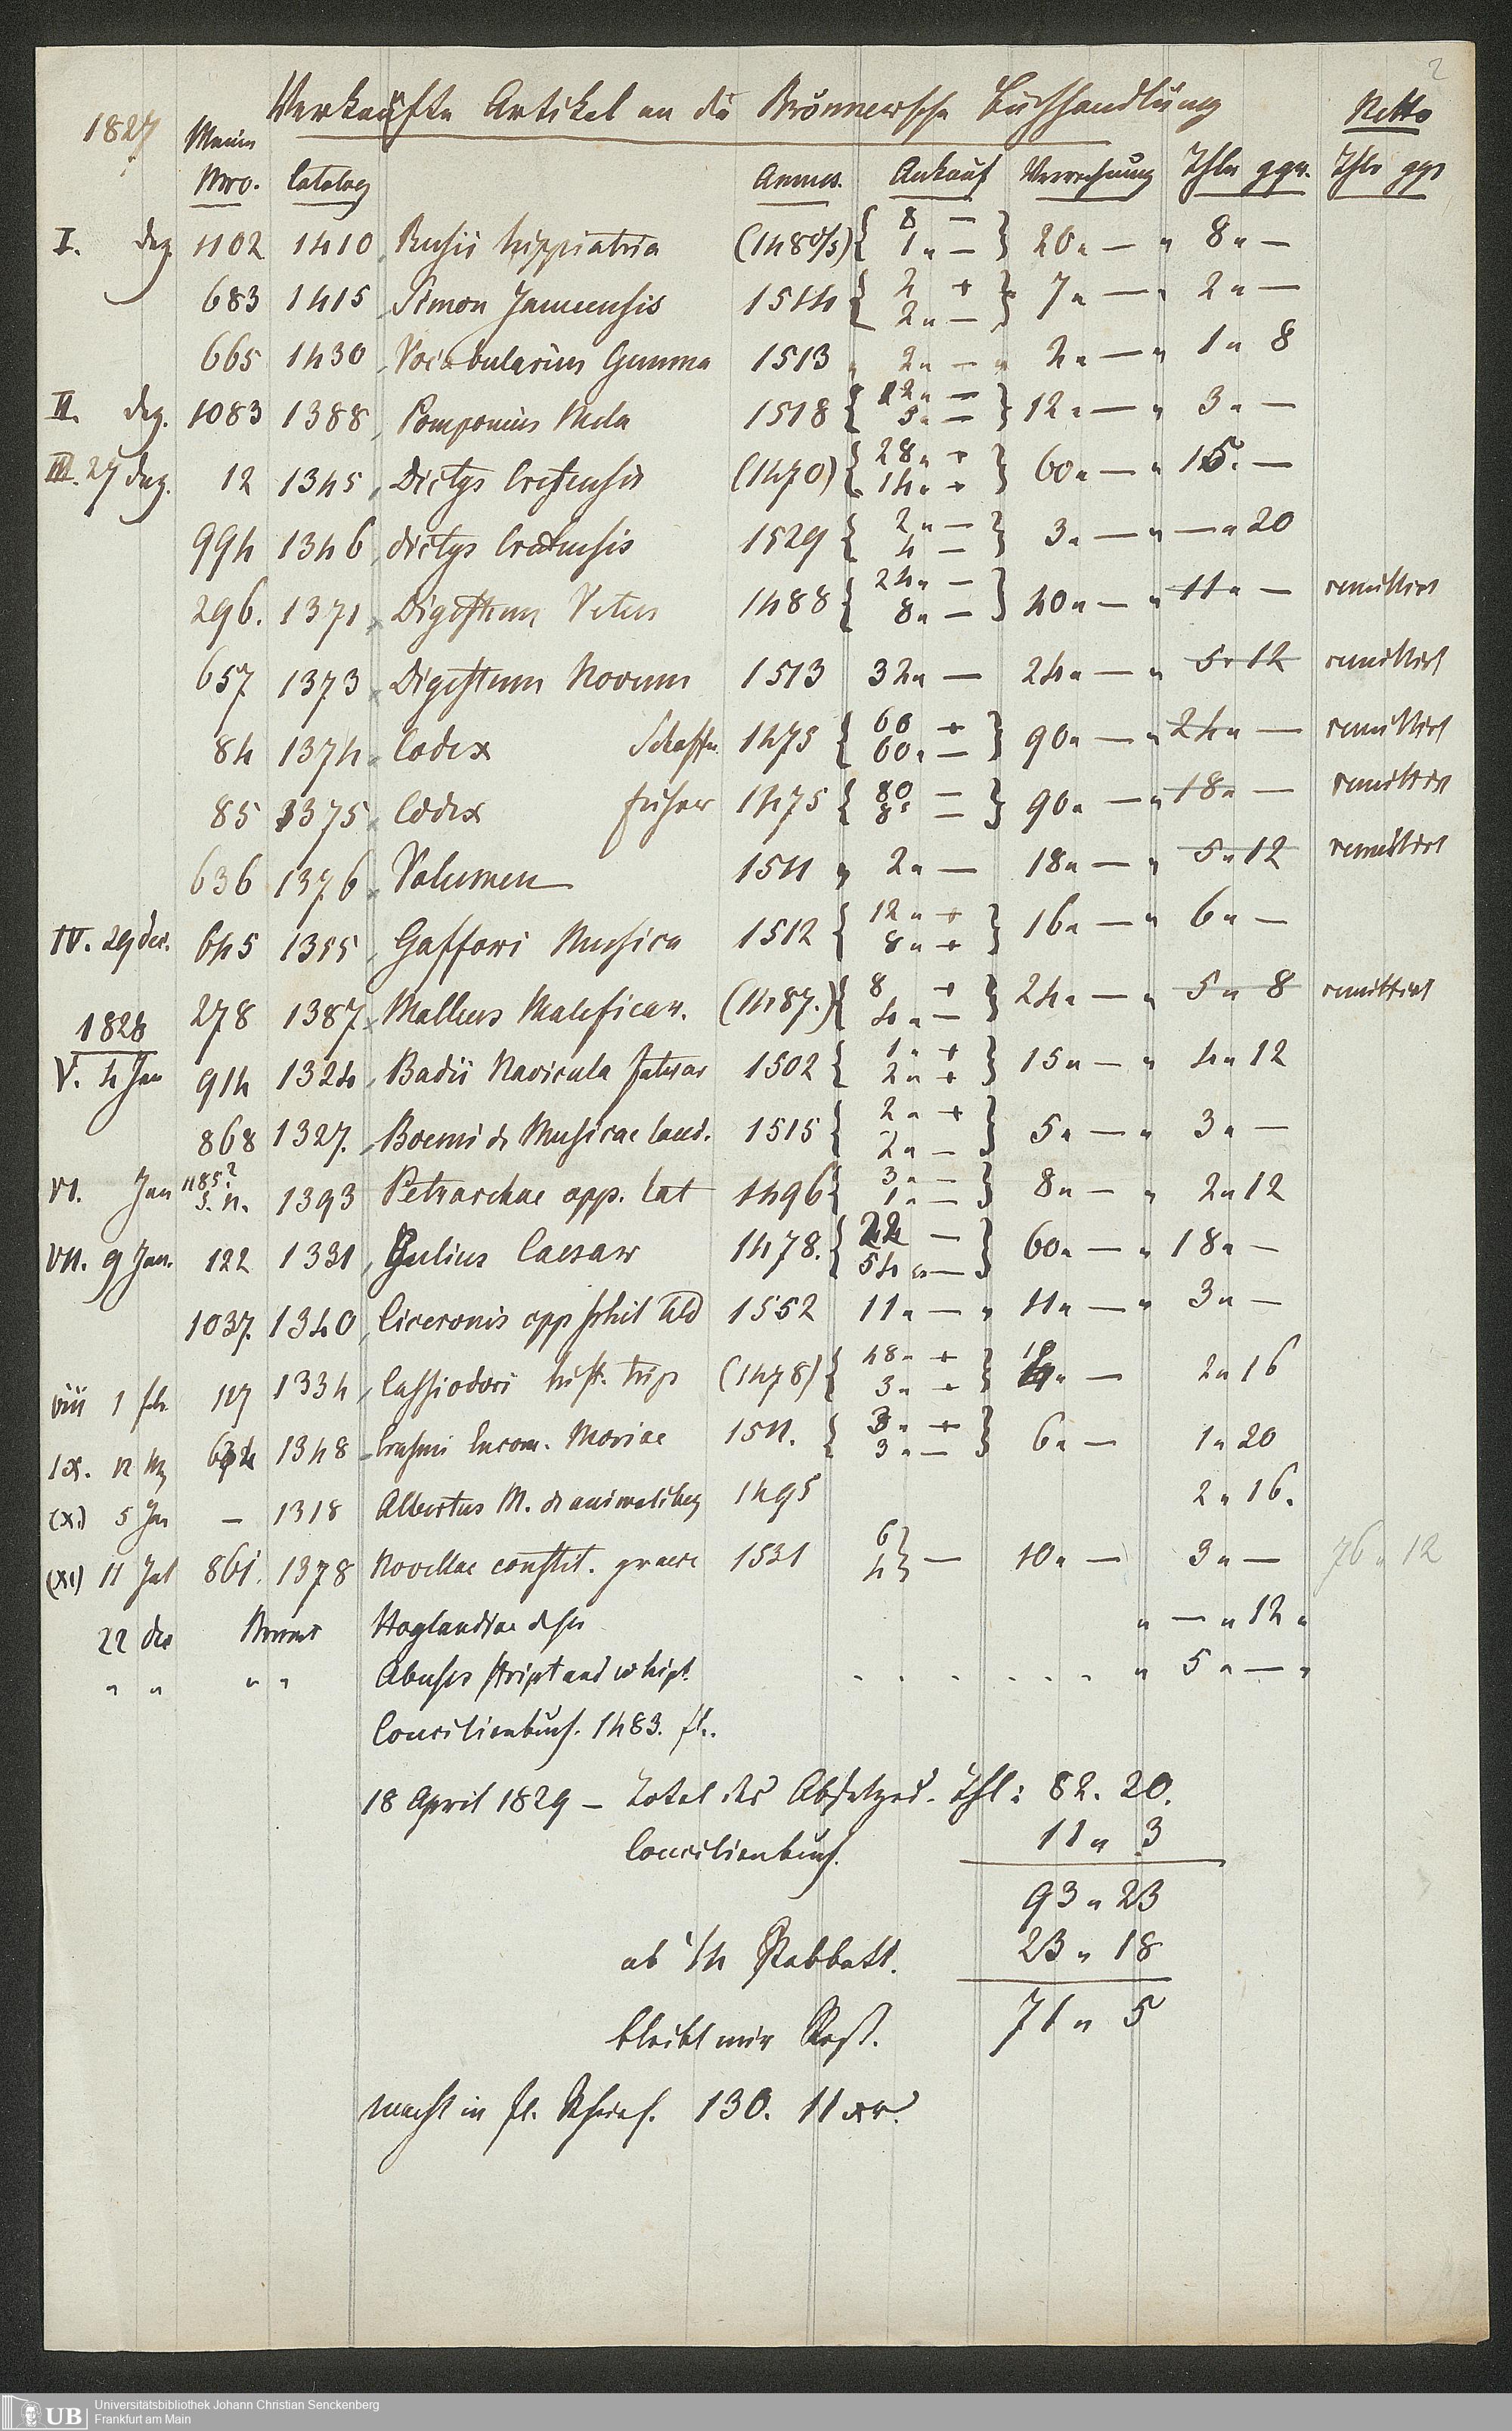 2
1827 Verkaufte Artikel an die Brönnersche Buchhandlung Netto
Meine
Nro. Catalog Annus. Ankauf Verrechnung Thlr ggr. Thlr ggr
I. Dez. 1102 1410 Rusii hippiatria (148 6/5) { 8 — 1 „ — } 20 „ — „ 8 „ —
683 1415 Simon Januensis 1514 { 2 + 2 „ — } 7 „ — „ 2 „ —
665 1430 Vocabularius Gemma 1513 „ 2 „ — „ 4 „ — „ 1 „ 8
II. Dez. 1083 1388 Pomponius Mela 1518 { 12 „ — 3 „ — } 12 „ — „ 3 „ —
III. 27 Dez. 12 1345 Dictys Cretensis (1470) { 28 „ + 14 „ + } 60 „ — „ 15. —
994 1346 Dictys Cretensis 1529 { 2 „ — 4 — } 3 „ — „ — „ 20
296. 1371 Digestum Vetus 1488 { 24 „ — 8 „ — } 40 „ — „ 11 „ — remittirt
657 1373 Digestum Novum 1513 32 „ — 24 „ — „ 5 „ 12 remittirt
84 1374 Codex Schoffer 1475 { 60 + 60 „ — } 90 „ — „ 24 „ — remittirt
85 1375 Codex 1475 { 80 — 8 „ — } 90 „ — „ 18 „ — remittirt
636 1376 Volumen 1511 „ 2 „ — 18 „ — „ 5 „ 12 remittirt
IV. 29 Dec. 645 1355 Gaffori Musica 1512 { 12 „ + 8 „ + } 16 „ — „ 6 „ —
278 1387 Malleus Maleficar. (1487.) { 8 + 4 „ — } 24 „ — „ 5 „ 8 remittirt
1828
V. 4 Jan 914 1324 Badii Navicula fatuar 1502 { 1 „ + 2 „ + } 15 „ — „ 4 „ 12
868 1327. Boemi de Musicae laud. 1515 { 2 „ + 2 „ — } 5 „ — „ 3 „ —
VI. Jan 1185? s. n. 1393 Petrarchae opp. lat 1496 { 3 „ — 1 „ — } 8 „ — „ 2 „ 12
VII. 9 Jan. 122 1331 Julius Caesar 1478. { 22 — 54 „ — } 60 „ — „ 18 „ —
1037. 1340 Ciceronis opp phil Ald 1552 11 „ — „ 11 „ — „ 3 „ —
VIII 1 feb. 117 1334 Cassiodori hist. trip (1478) { 48 „ + 3 „ + } „ — 2 „ 16
IX. 12 Mz 1348 Erasmi Encom. Moriae 1511. { 3 „ + 3 „ — } 6 „ — 1 „ 20
(X.) 5 Jun — 1318 Albertus M. de animalibus 1495 2 „ 16.
(XI) 11 Jul 861. 1378 Novellae constit. graece 1531 6 4 } — 10 „ — 3 „ — 76 „ 12
22 Dec Hoglandiae descr „ — „ 12 „
„ „ „ „ Abuses stript and whipt. . . . . . . . „ 5 „ — „
Concilienbuch. 1483. fl..
18 April 1829 — Total des Absatzes. Thl: 82. 20.
Concilienbuch. 11 „ 3
93 „ 23
ab 1/4 Rabbatt. 23 „ 18
bleibt mir Rest. 71 „ 5
macht in fl. Rhein. 130. 11 xr.
UB Universitätsbibliothek Johann Christian Senckenberg
Frankfurt am Main